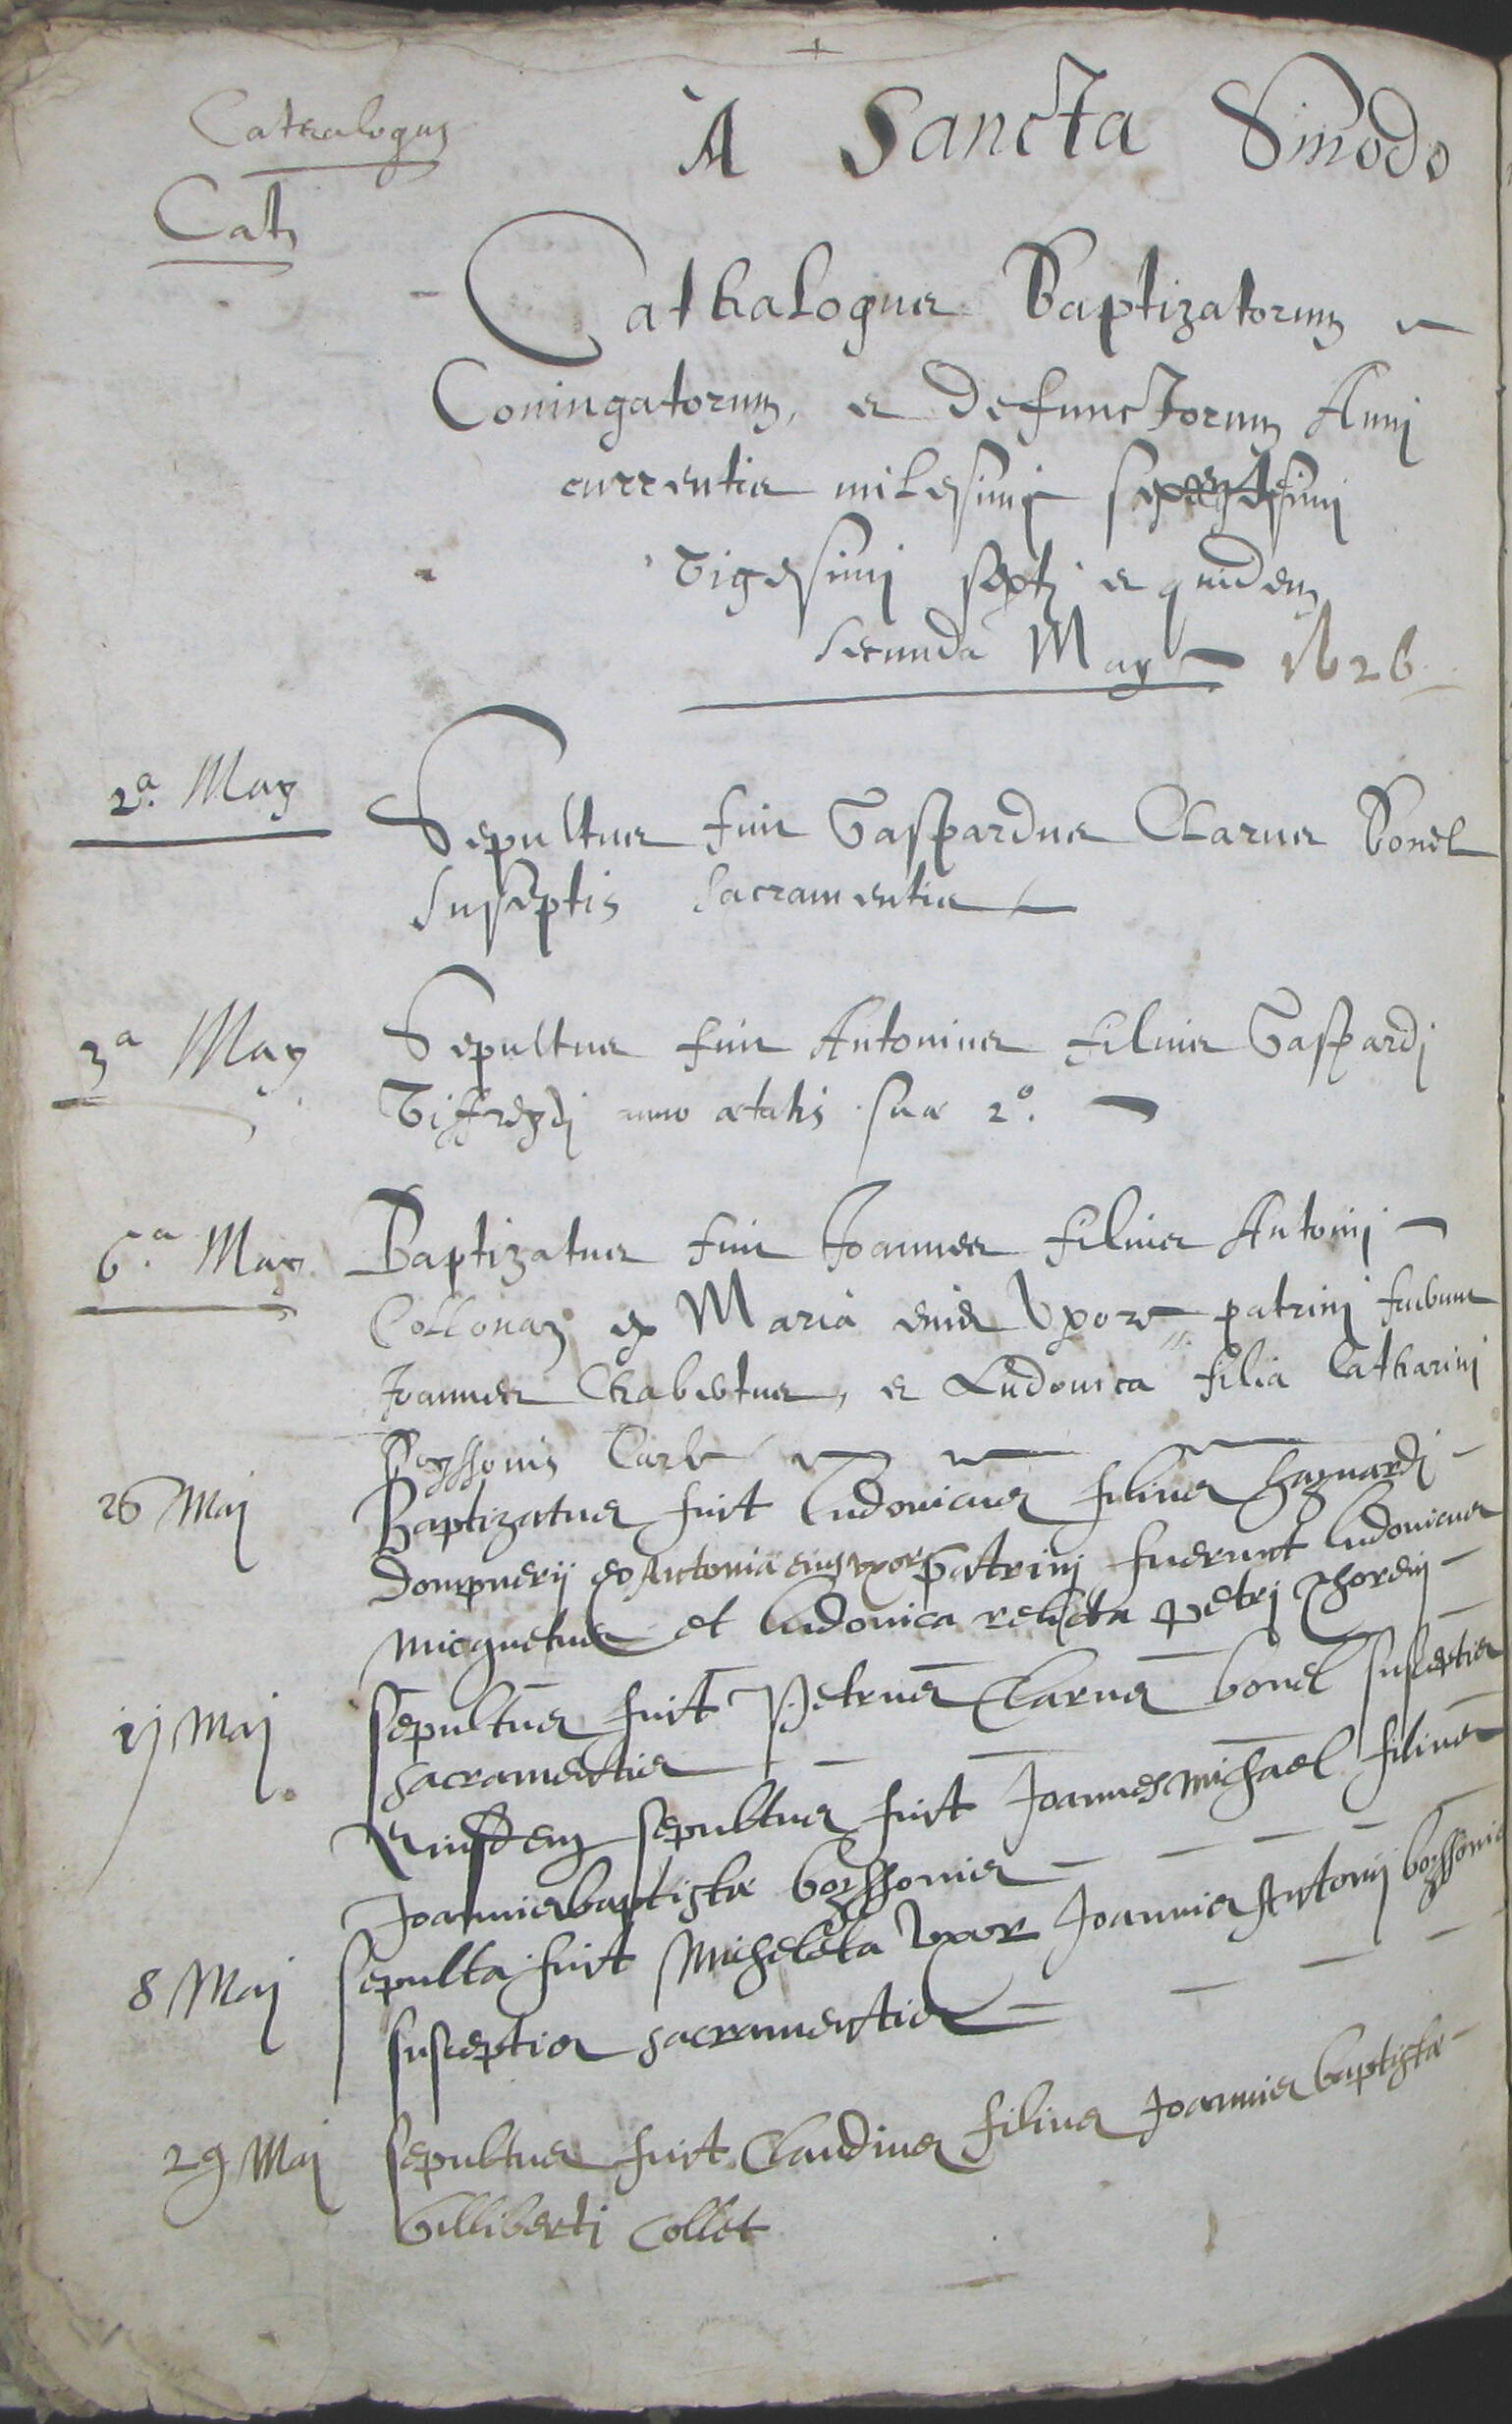 Cathalogus
A Sancta Sinodo
Cath
Cathalogus Baptizatorum
Coniugatorum, et defunctorum Anni
currentis milesimi
vigesimi sexti et quidem
secunda May 1626
2a. May
Sepultus fuit Gaspardus Clarus Bonel
susceptis sacramentis
3a May
Sepultus fuit Antonius filius Gaspardi
anno ætatis suæ 2o.
6a. May
Baptizatus fuit Joannes filius Antonii
Collonaz ex Maria eius Uxore patrini fuerunt
Joannes Chabertus, et Ludovica filia Catharini
26 Maij
Baptizatus fuit Ludovicus filius
Dompnerii et Antonia eius uxore patrini fuerunt ludovicus
Micquetus et ludovica relicta Petri
Maij
sepultus fuit Petrus Clarus bonel susceptis
sacramentis
Eiusdem sepultus fuit Joannes Michael filius
Joannis baptistæ boyssonis
8 Maij
sepulta fuit Micheleta Uxor Joannis Antonii boyssonis
susceptis sacramentis
29 Maij
sepultus fuit Claudius filius Joannis baptistæ
Villiberti Collet